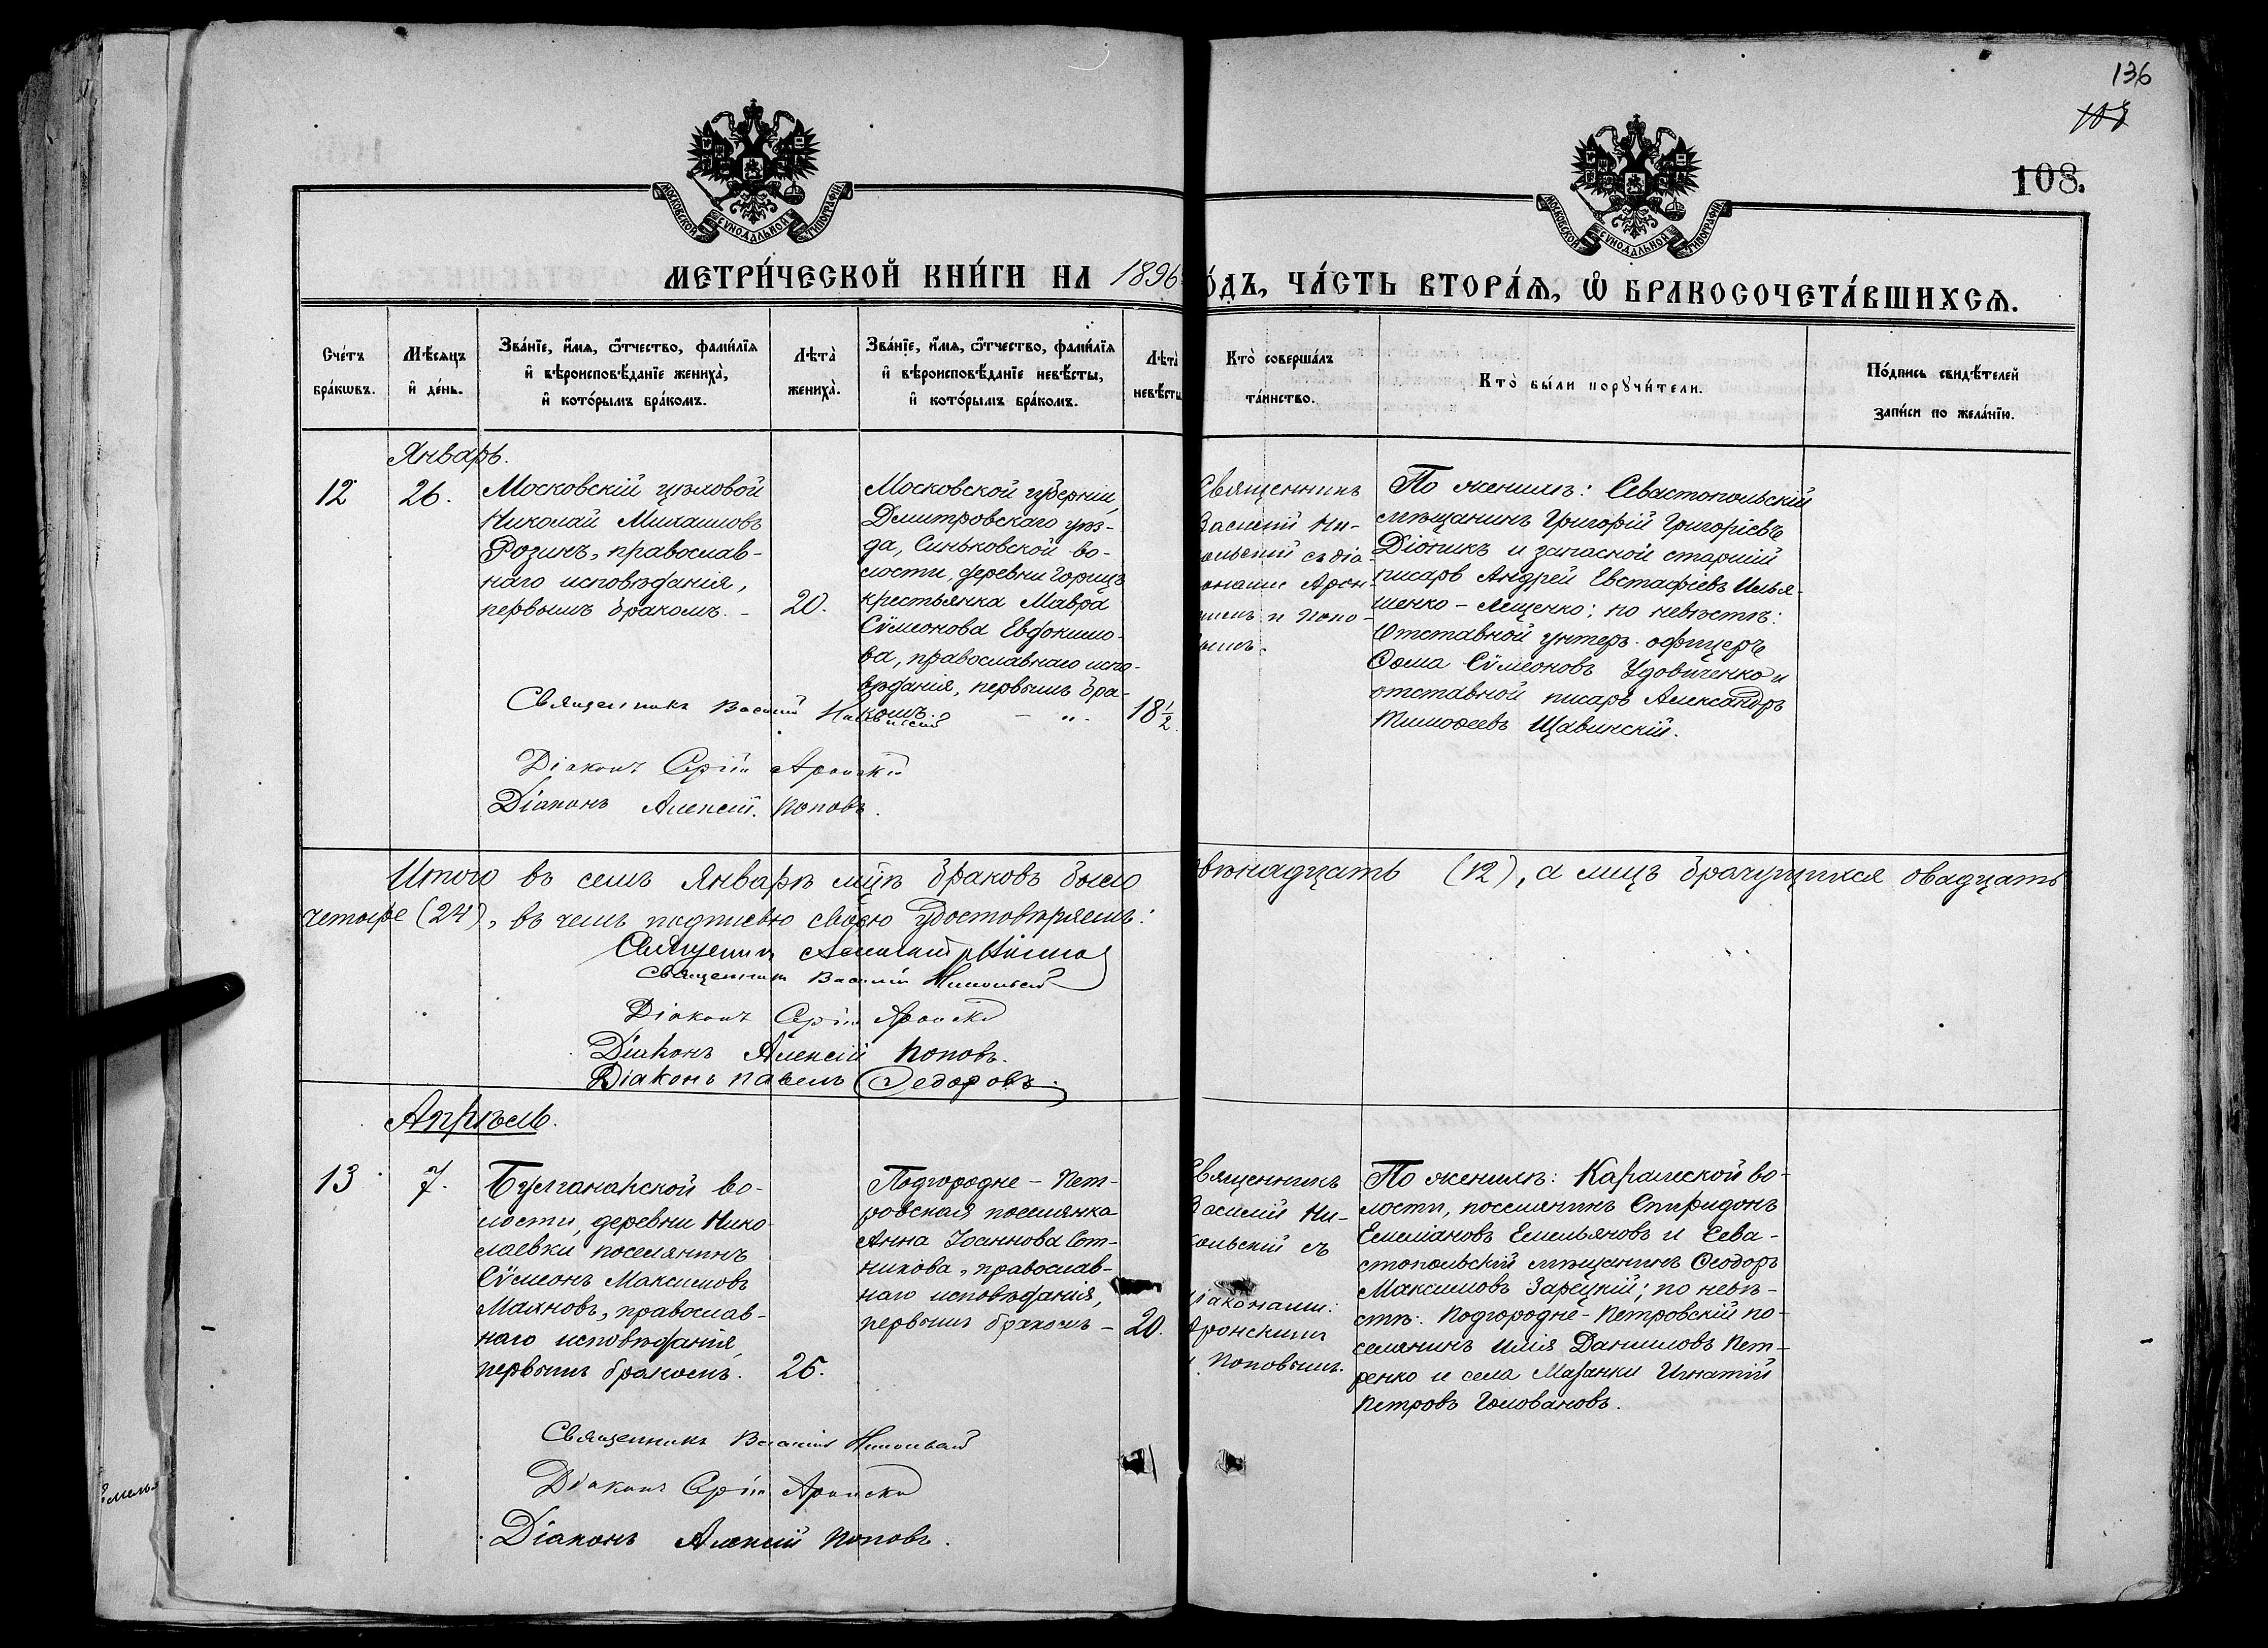 136
108
108.
МОСКОВСКОЙ СѴНОДАЛЬНОЙ ТИПОГРАФІИ
МОСКОВСКОЙ СѴНОДАЛЬНОЙ ТИПОГРАФІИ
МЕТРИ́ЧЕСКОЙ КНИ́ГИ НА 1896
О́ДЪ, ЧА́СТЬ ВТОРА́Ѧ, Ѽ БРАКОСОЧЕТА́ВШИХСѦ.
Сче́тъ
бра́кѡвъ.
Мѣ́сяцъ
и҆ де́нь.
Зва́нїе, и҆́мя, ѻ҆́тчество, фамѝлїя
и҆ вѣроисповѣ́данїе жениха̀,
и҆ кото́рымъ бра́комъ.
Лѣта̀
жениха̀.
Зва́нїе, и҆́мя, ѻ҆́тчество, фамѝлїя
и҆ вѣроисповѣ́данїе невѣ́сты,
и҆ кото́рымъ бра́комъ.
Лѣта̀
невѣ́сты
Кто̀ соверша́лъ
та́инство.
Кто̀ бы́ли порꙋчи́тели.
По́дпись свидѣ́телей
за́писи по жела́нїю.
Январь.
12
26.
Московскій цѣховой
Николай Михаиловъ
Розинъ, православ-
наго исповѣданія,
первымъ бракомъ. -
20.
Московской губерніи,
Дмитровскаго уѣз-
да, Синьковской во-
лости, деревни Горицъ
крестьянка Мавра
Сѵмеонова Евдокимо-
ва, православнаго испо-
вѣданія, первымъ бра-
комъ. - „ -
18½.
Священникъ
Василій Ни-
ольскій съ діа
онами Арон
имъ и Попо-
ымъ.
По женихѣ: Севастопольскій
мѣщанинъ Григорій Григоріевъ
Діоникъ и запасной старшій
писарь Андрей Евстафіевъ Илья-
шенко-Лещенко; по невѣстѣ:
Отставной унтеръ-офицеръ
Ѳома Сѵмеоновъ Удовиченко и
отставной писарь Александръ
Тимоѳеевъ Щавинскій.
Священникъ Василій Никольскій
Діаконъ Сергій Аронскій
Діаконъ Алексій Поповъ.
Итого въ семъ Январѣ мцѣ браковъ было
вѣнадцать (12), а лицъ брачущихся двадцать
четыре (24), въ чемъ подписью своею удостовѣряемъ:
Священникъ
Священникъ Василій Никольскій
Діаконъ Сергій Аронскій
Діаконъ Алексій Поповъ.
Діаконъ Павелъ Ѳедоровъ.
Апрѣль.
13
7.
Булганакской во-
лости, деревни Нико-
лаевки поселянинъ
Сѵмеонъ Максимовъ
Махновъ, православ-
наго исповѣданія,
первымъ бракомъ.
25.
Подгородне-Пет-
ровская поселянка
Анна Іоаннова Сот-
никова, православ-
наго исповѣданія,
первымъ бракомъ -
20.
Священникъ
Василій Ни-
кольскій съ
іаконами:
Аронскимъ
и Поповымъ.
По женихѣ: Каралеской во-
лости, поселянинъ Спиридонъ
Емеліановъ Емельяновъ и Сева-
стопольскій мѣщанинъ Ѳеодоръ
Максимовъ Зарецкій; по невѣ-
стѣ: Подгородне-Петровскій по-
селянинъ Илія Даниловъ Пет-
ренко и села Мазанки Игнатій
Петровъ Головановъ.
Священникъ Василій Никольскій
Діаконъ Сергій Аронскій
Діаконъ Алексій Поповъ.